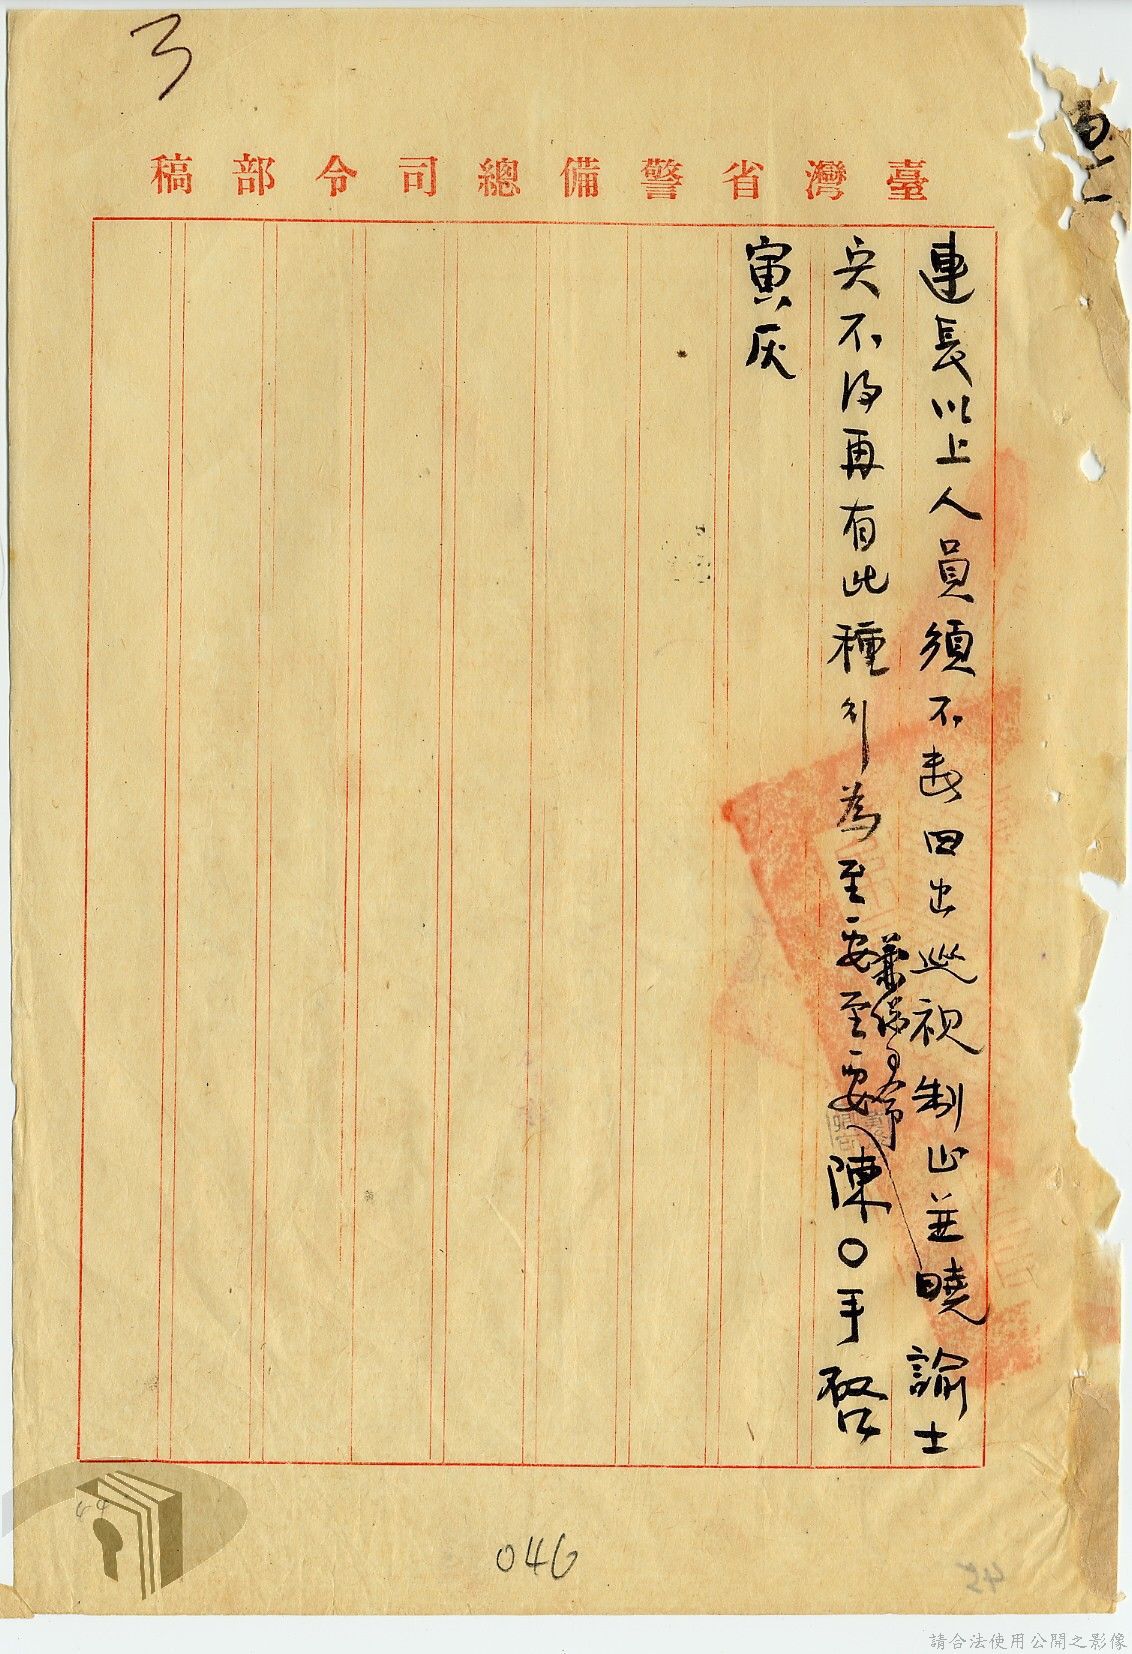 臺灣省警備總司令部稿
連長以上人員須不表四出巡視制止並曉諭士
兵不得再有此種行為至要至要陳○手啓
兼總司令
寅灰
046
44
請合法使用公開之影像